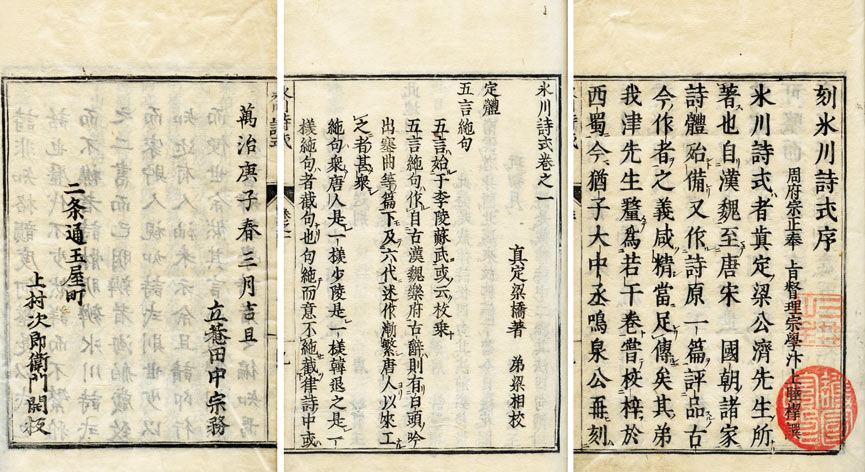 刻氷川詩式序
周府宗正奉 旨督理宗學汴上睦㮮譔
氷川詩式者眞定梁公濟先生所
著也自漢魏至唐宋 國朝諸家
詩體殆備又作詩原一篇評品古
今作者之義咸精當足傳矣其弟
我津先生釐為若干卷嘗校梓於
西蜀今猶子大中丞鳴泉公再刻
氷川詩式卷之一
真定梁橋著 弟梁相校
定體
五言絶句
五言始于李陵蘇武或云枚乗
五言絶句作自古漢魏樂府古辭則有白頭吟
出塞曲等篇下及六代述作漸繁唐人以來工
之者甚衆
絶句衆唐人是一樣少陵是一樣韓退之是一
樣絶句者截句也句絶而意不絶截律詩中或
萬治庚子春三月吉旦
立菴田中宗務
二条通玉屋町
上村次郎衛門開板